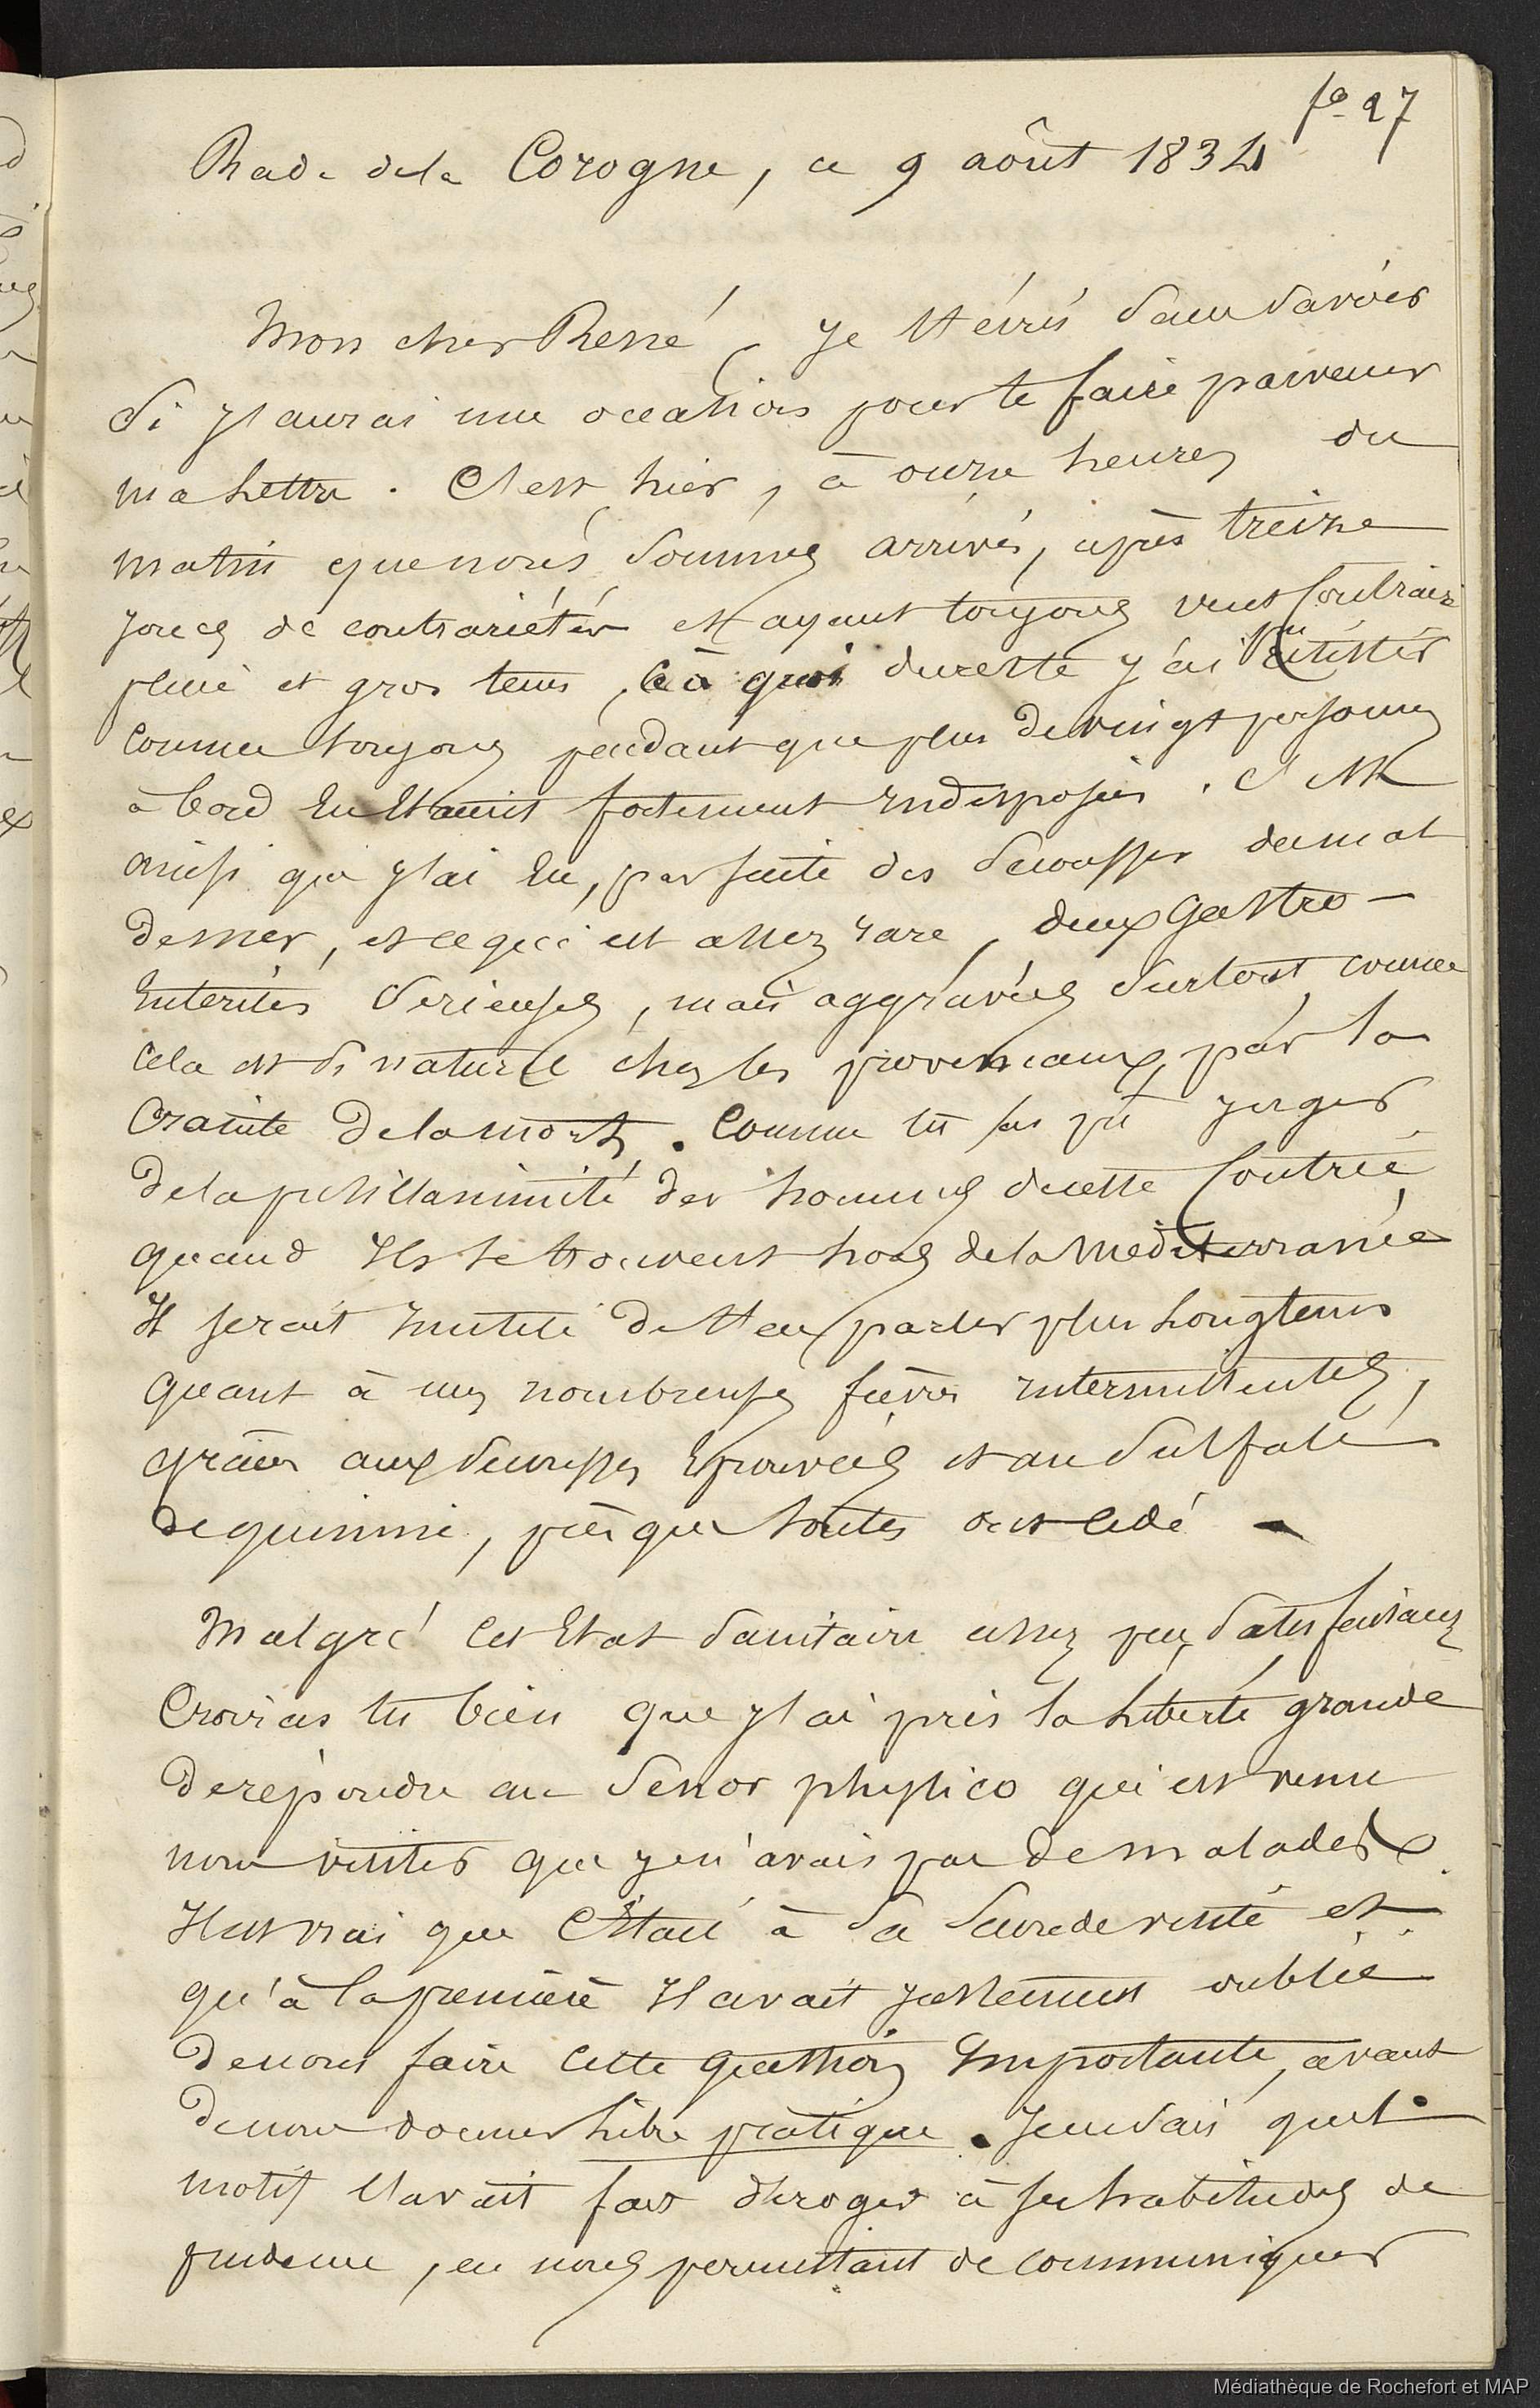 fo 27
Rade de la Corogne, ce 9 aôut 1834
Mon cher René, Je t'écris sans savoir
si j'aurai une occasion pour te faire parvenir
ma lettre. C'est hier, à onze heures du
matin que nous sommes arrivés, après treize
jours de contrariétés et ayant toujours vent contraire
pluie et gros tems, à quoi dureste j'ai résisté
comme toujours pendant que plus de vingt personnes
à bord en étaient fortement indisposées. C'est
ainsi que j'ai eu, par suite des secousses du mal
de mer, et ce qui est assez rare, deux Gastro-
Entérites sérieuses, mais aggravées surtout comme
cela est si naturel chez les provencaux, par la
crainte de la mort. Comme tu as pû juger
de la pusillanimité des hommes de cette contrée
quand ils se trouvent hors de la Mediterranée
Il serait inutile de t'en parler plus longtems
quant à mes nombreuses fièvres intermittentes,
grâces aux secousses éprouvées et au sulfate
de quinine, presque toutes ont cédé -
Malgré cet Etat sanitaire assez peu satisfaisant
Croirais tu bien que j'ai pris la liberté grande
de répondre au Senor physico qui est venu
nous visiter que je n'avais pas de malades
Il est vrai que c'était à sa seconde visite et
qu'à la première Il avait justement oublié
de nous faire cette question importante, avant
de nous donner libre pratique. Je ne sais quel
motif l'avait fait déroger à ses habitudes de
prudence, en nous permettant de communiquer
Médiathèque de Rochefort et MAP